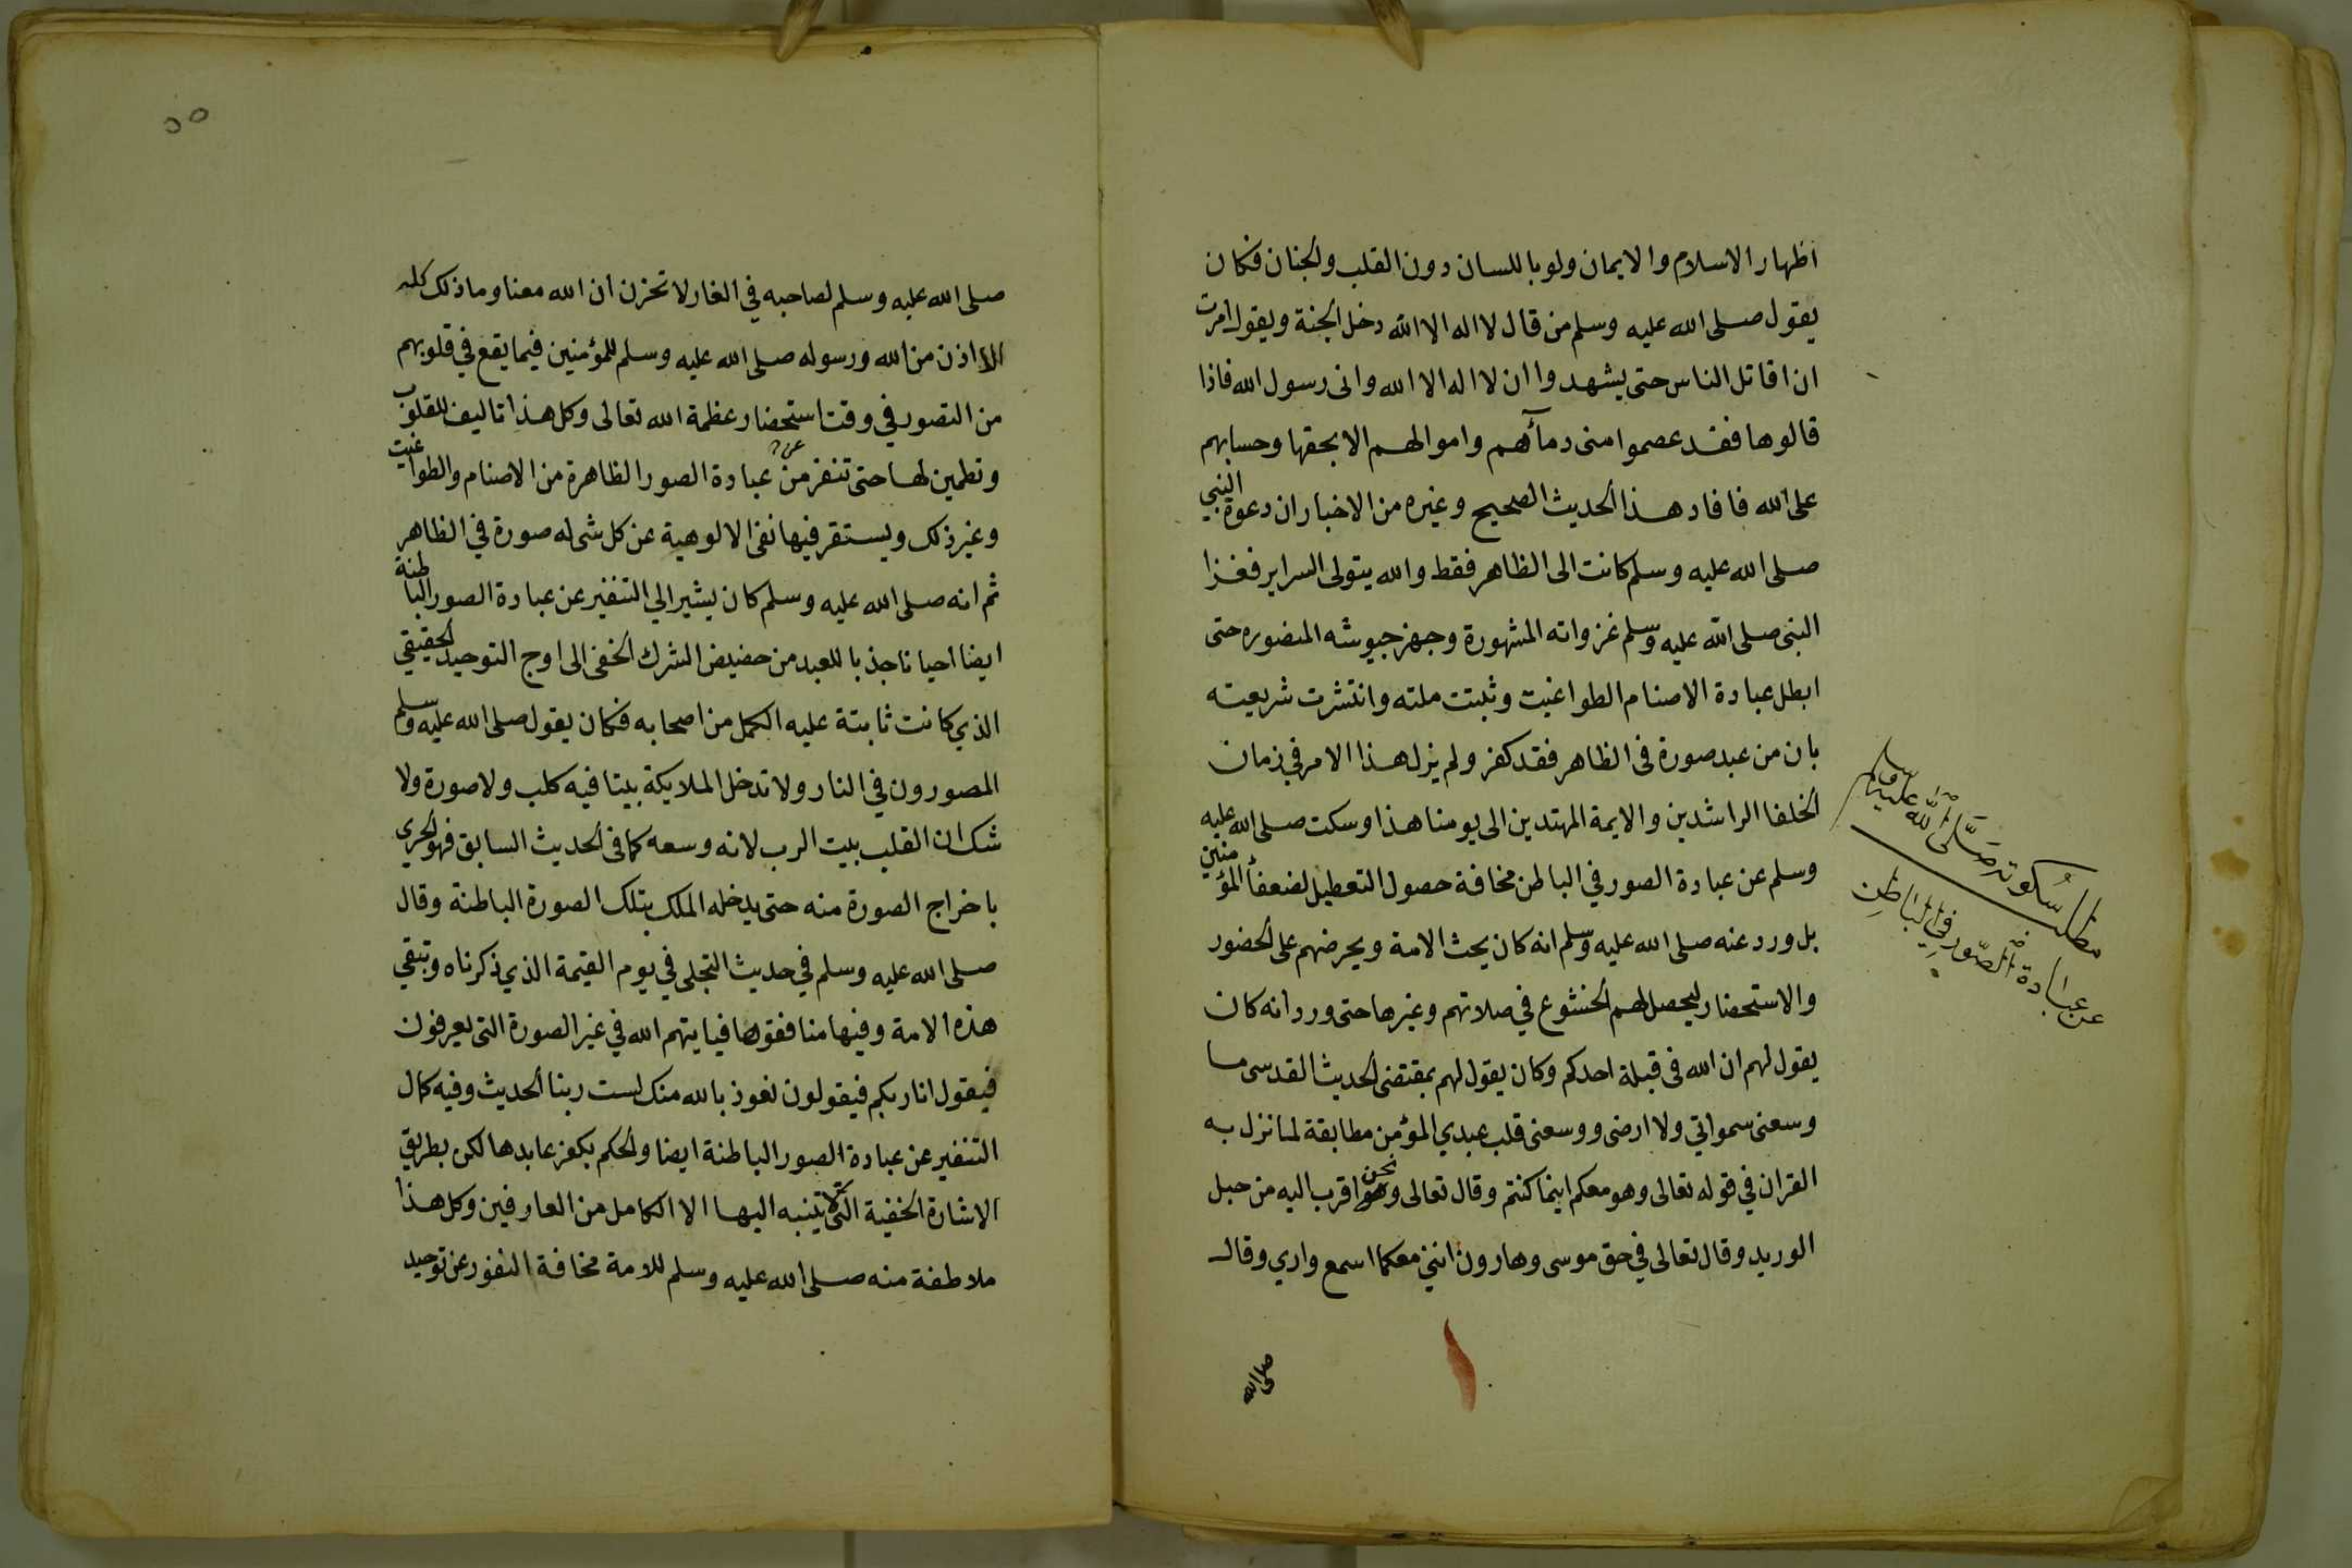 اظهار الاسلام والايمان ولو باللسان دون القلب والجنان فكان
يقول صلى الله عليه وسلم من قال لا اله الا الله دخل الجنة ويقول امرت
ان اقاتل الناس حتى يشهدوا ان لا اله الا الله وانى رسول الله فاذا
قالوها فقد عصموا منى دمآهم واموالهم الا بحقها وحسابهم
على الله فافاد هذا الحديث الصحيح وغيره من الاخبار ان دعوة النبي
صلى الله عليه وسلم كانت الى الظاهر فقط والله يتولى السراير فغزا
النبى صلى الله عليه وسلم غزواته المشهورة وجهز جيوشه المنصوره حتى
ابطل عبادة الاصنام الطواغيت وثبتت ملته وانتشرت شريعته
بان من عبد صورة فى الظاهر فقد كفر ولم يزل هذا الامر في زمان
الخلفا الراشدين والايمة المهتدين الى يومنا هذا وسكت صلى الله عليه
وسلم عن عبادة الصور في الباطن مخافة حصول التعطيل لضعفأ المؤمنين
بل ورد عنه صلى الله عليه وسلم انه كان يحث الامة ويحرضهم على الحضور
والاستحضار ليحصل لهم الخشوع في صلاتهم وغيرها حتى ورد انه كان
يقول لهم ان الله فى قبلة احدكم وكان يقول لهم بمقتضى الحديث القدسى ما
وسعنى سمواتي ولا ارضى ووسعنى قلب عبدي المؤمن مطابقة لما نزل به
القران في قوله تعالى وهو معكم اينما كنتم وقال تعالى ونحن اقرب اليه من حبل
الوريد وقال تعالى في حق موسى وهارون اننى معكما اسمع واري وقال
صلى الله
مطلب سكوته صلى الله عليه وسلم
عن عبادة الصور في الباطن
٥٥
صلى الله عليه وسلم لصاحبه في الغار لا تحزن ان الله معنا وما ذلك كله
الا اذن من الله ورسوله صلى الله عليه وسلم للمؤمنين فيما يقع في قلوبهم
من التصور في وقت استحضار عظمة الله تعالى وكل هذا تاليف للقلوب
وتطمين لها حتى تنفر من عن عبادة الصور الظاهرة من الاصنام والطواغيت
وغير ذلك ويستقر فيها نفى الالوهية عن كل شى له صورة في الظاهر
ثم انه صلى الله عليه وسلم كان يشير الي التنفير عن عبادة الصور الباطنة
ايضا احيانا جذبا للعبد من حضيض الشرك الخفى الى اوج التوحيد الحقيقي
الذي كانت ثابتة عليه الكمل من اصحابه فكان يقول صلى الله عليه وسلم
المصورون في النار ولا تدخل الملايكة بيتا فيه كلب ولا صورة ولا
شك ان القلب بيت الرب لانه وسعه كما فى الحديث السابق فهو الحري
باخراج الصورة منه حتى يدخله الملك بتلك الصورة الباطنة وقال
صلى الله عليه وسلم في حديث التجلى في يوم القيمة الذي ذكرناه وتبقي
هذه الامة وفيها منافقوها فيايتهم الله في غير الصورة التى يعرفون
فيقول انا ربكم فيقولون نعوذ بالله منك لست ربنا الحديث وفيه كمال
التنفير عن عبادة الصور الباطنة ايضا والحكم بكفر عابدها لكن بطريق
الاشارة الخفية التى لا يتنبه اليها الا الكامل من العارفين وكل هذا
ملاطفة منه صلى الله عليه وسلم للامة مخافة النفور عن توحيد